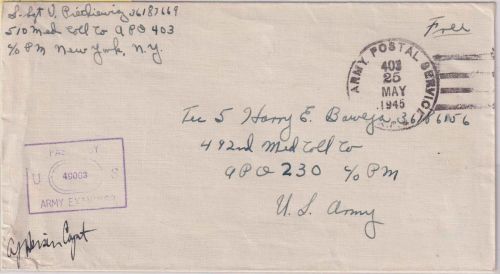 S. Sgt V. Pietkiewicz 36187669
510 Med Coll Co APO 403
c/o PM New York, N.Y.
Free
ARMY POSTAL SERVICE
403
25
MAY
1945
A.P.O.
Tec 5 Harry E. Baweja
492nd Med Coll Co
APO 230 c/o PM
U.S. Army
PASSED BY
U S
49003
ARMY EXAMINER
Capt